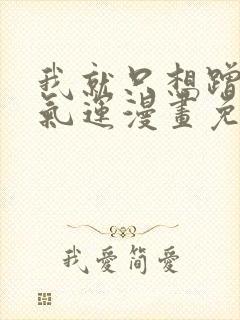 我就只想蹭
氣運漫畫免
我愛简愛